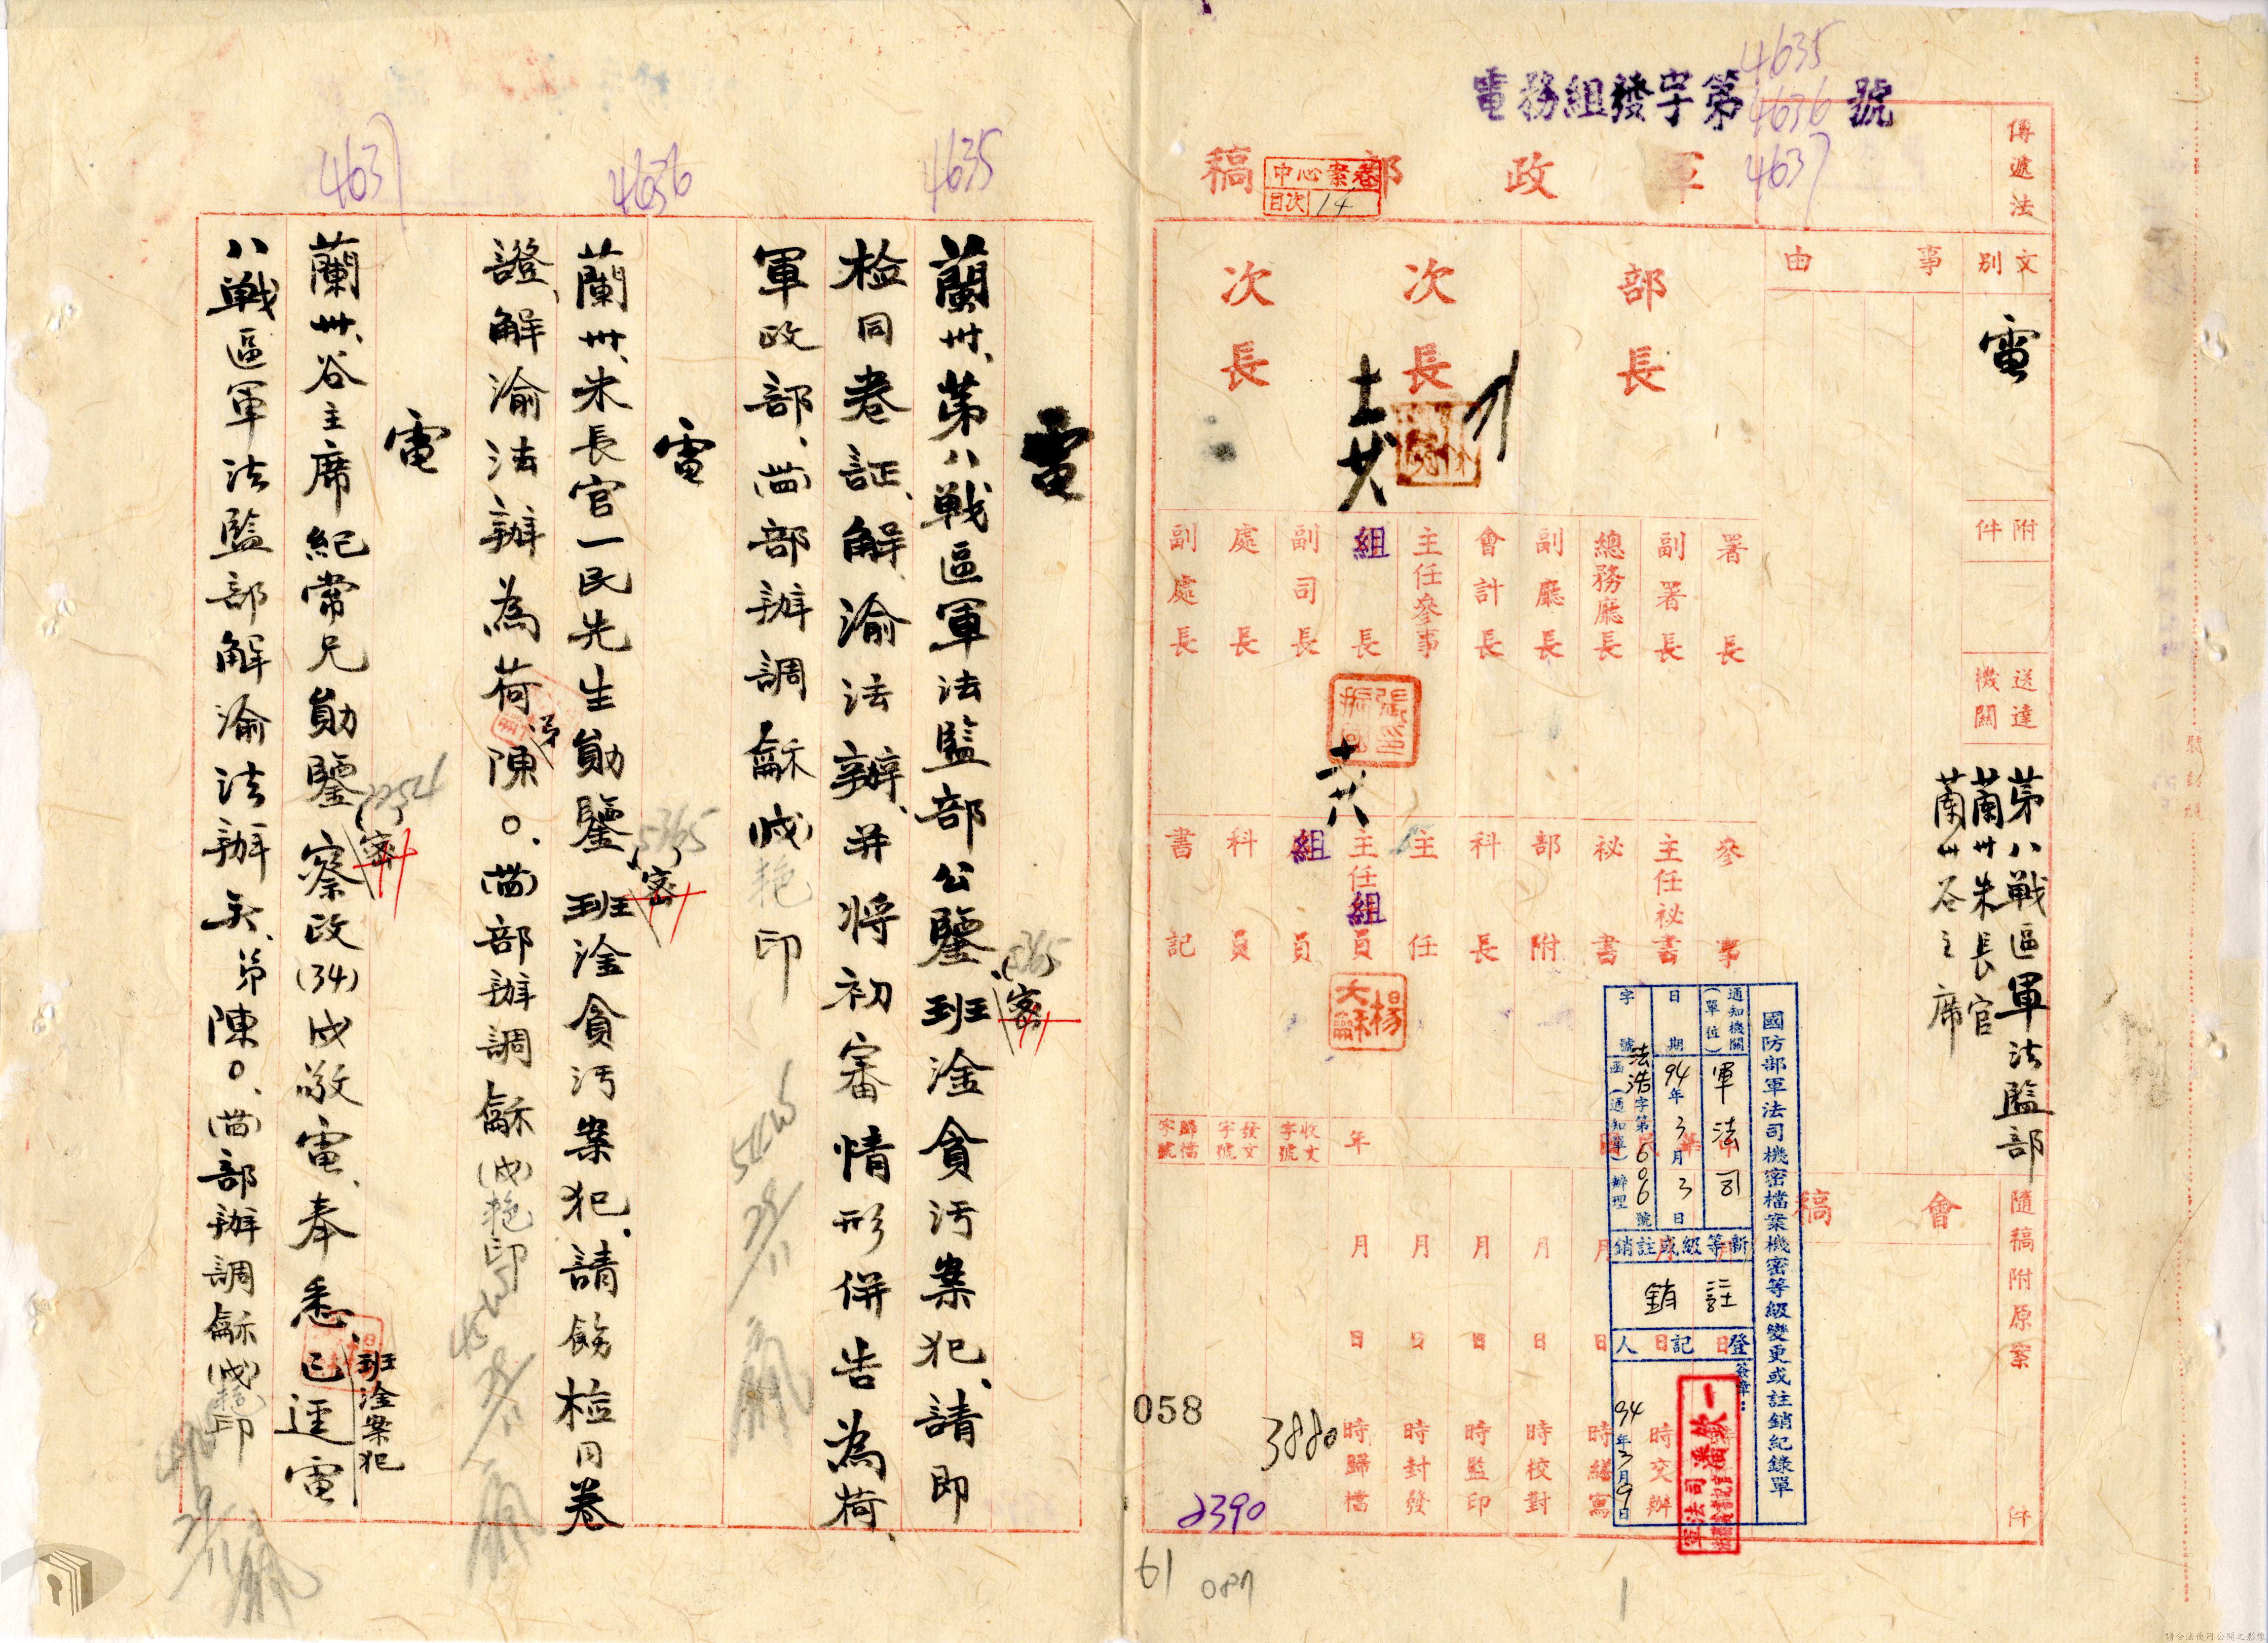 電務組發字第 號
4635
4636
4637
軍政部稿
中心案卷
目次 14
傳遞法
文別
電
附件
送達機關
第八戰區軍法監部
蘭州朱長官
蘭州谷主席
隨稿附原案 件
事由
會稿
部長
次長
次長
署長
副署長
總務廳長
副廳長
會計長
主任參事
組長
副司長
處長
副處長
參事
主任秘書
秘書
部附
科長
主任
主任組員
組員
科員
書記
收文字號
發文字號
歸檔字號
年
月 日 時交辦
月 日 時繕寫
月 日 時校對
月 日 時監印
月 日 時封發
月 日 時歸檔
國防部軍法司機密檔案機密等級變更或註銷紀錄單
通知機關(單位) 軍法司
日期 94年3月3日
字號 法浩字第696號函(通知單)辦理
新等級或註銷
註銷
登記人
簽章:
94年3月9日
058
3880
2390
61
087
4635
電
蘭州、第八戰區軍法監部公鑒(密)班淦貪污案犯、請即
檢同卷証、解渝法辦、并將初審情形併告為荷、
軍政部、(茴)部辦調龢(戌)艳印
4636
電
蘭州、朱長官一民先生勛鑒(密)班淦貪污案犯、請飭檢同卷
證、解渝法辦為荷弟陳○、(茴)部辦調龢(戌)艳印
4637
電
蘭州、谷主席紀常兄勛鑒(密)察政(34)戌敬電、奉悉、班淦案犯已逕電
八戰區軍法監部解渝法辦矣、弟陳○、(茴)部辦調龢(戌)艳印